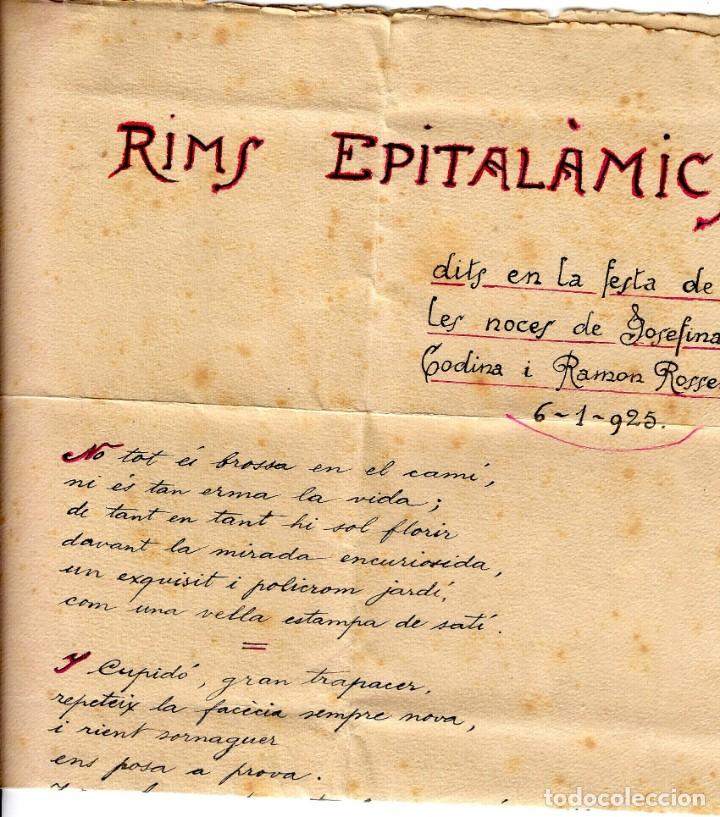 RIMS EPITALÀMICS
dits en la festa de
les noces de Josefina
Codina i Ramon Rosse
6-1-925.
No tot és brossa en el camí,
ni és tan erma la vida;
de tant en tant hi sol florir
davant la mirada encuriosida,
un exquisit i policrom jardí,
com una vella estampa de satí.
Y Cupidó, gran trapacer,
repeteix la facècia sempre nova,
i rient sornaguer
ens posa a prova.
todocoleccion